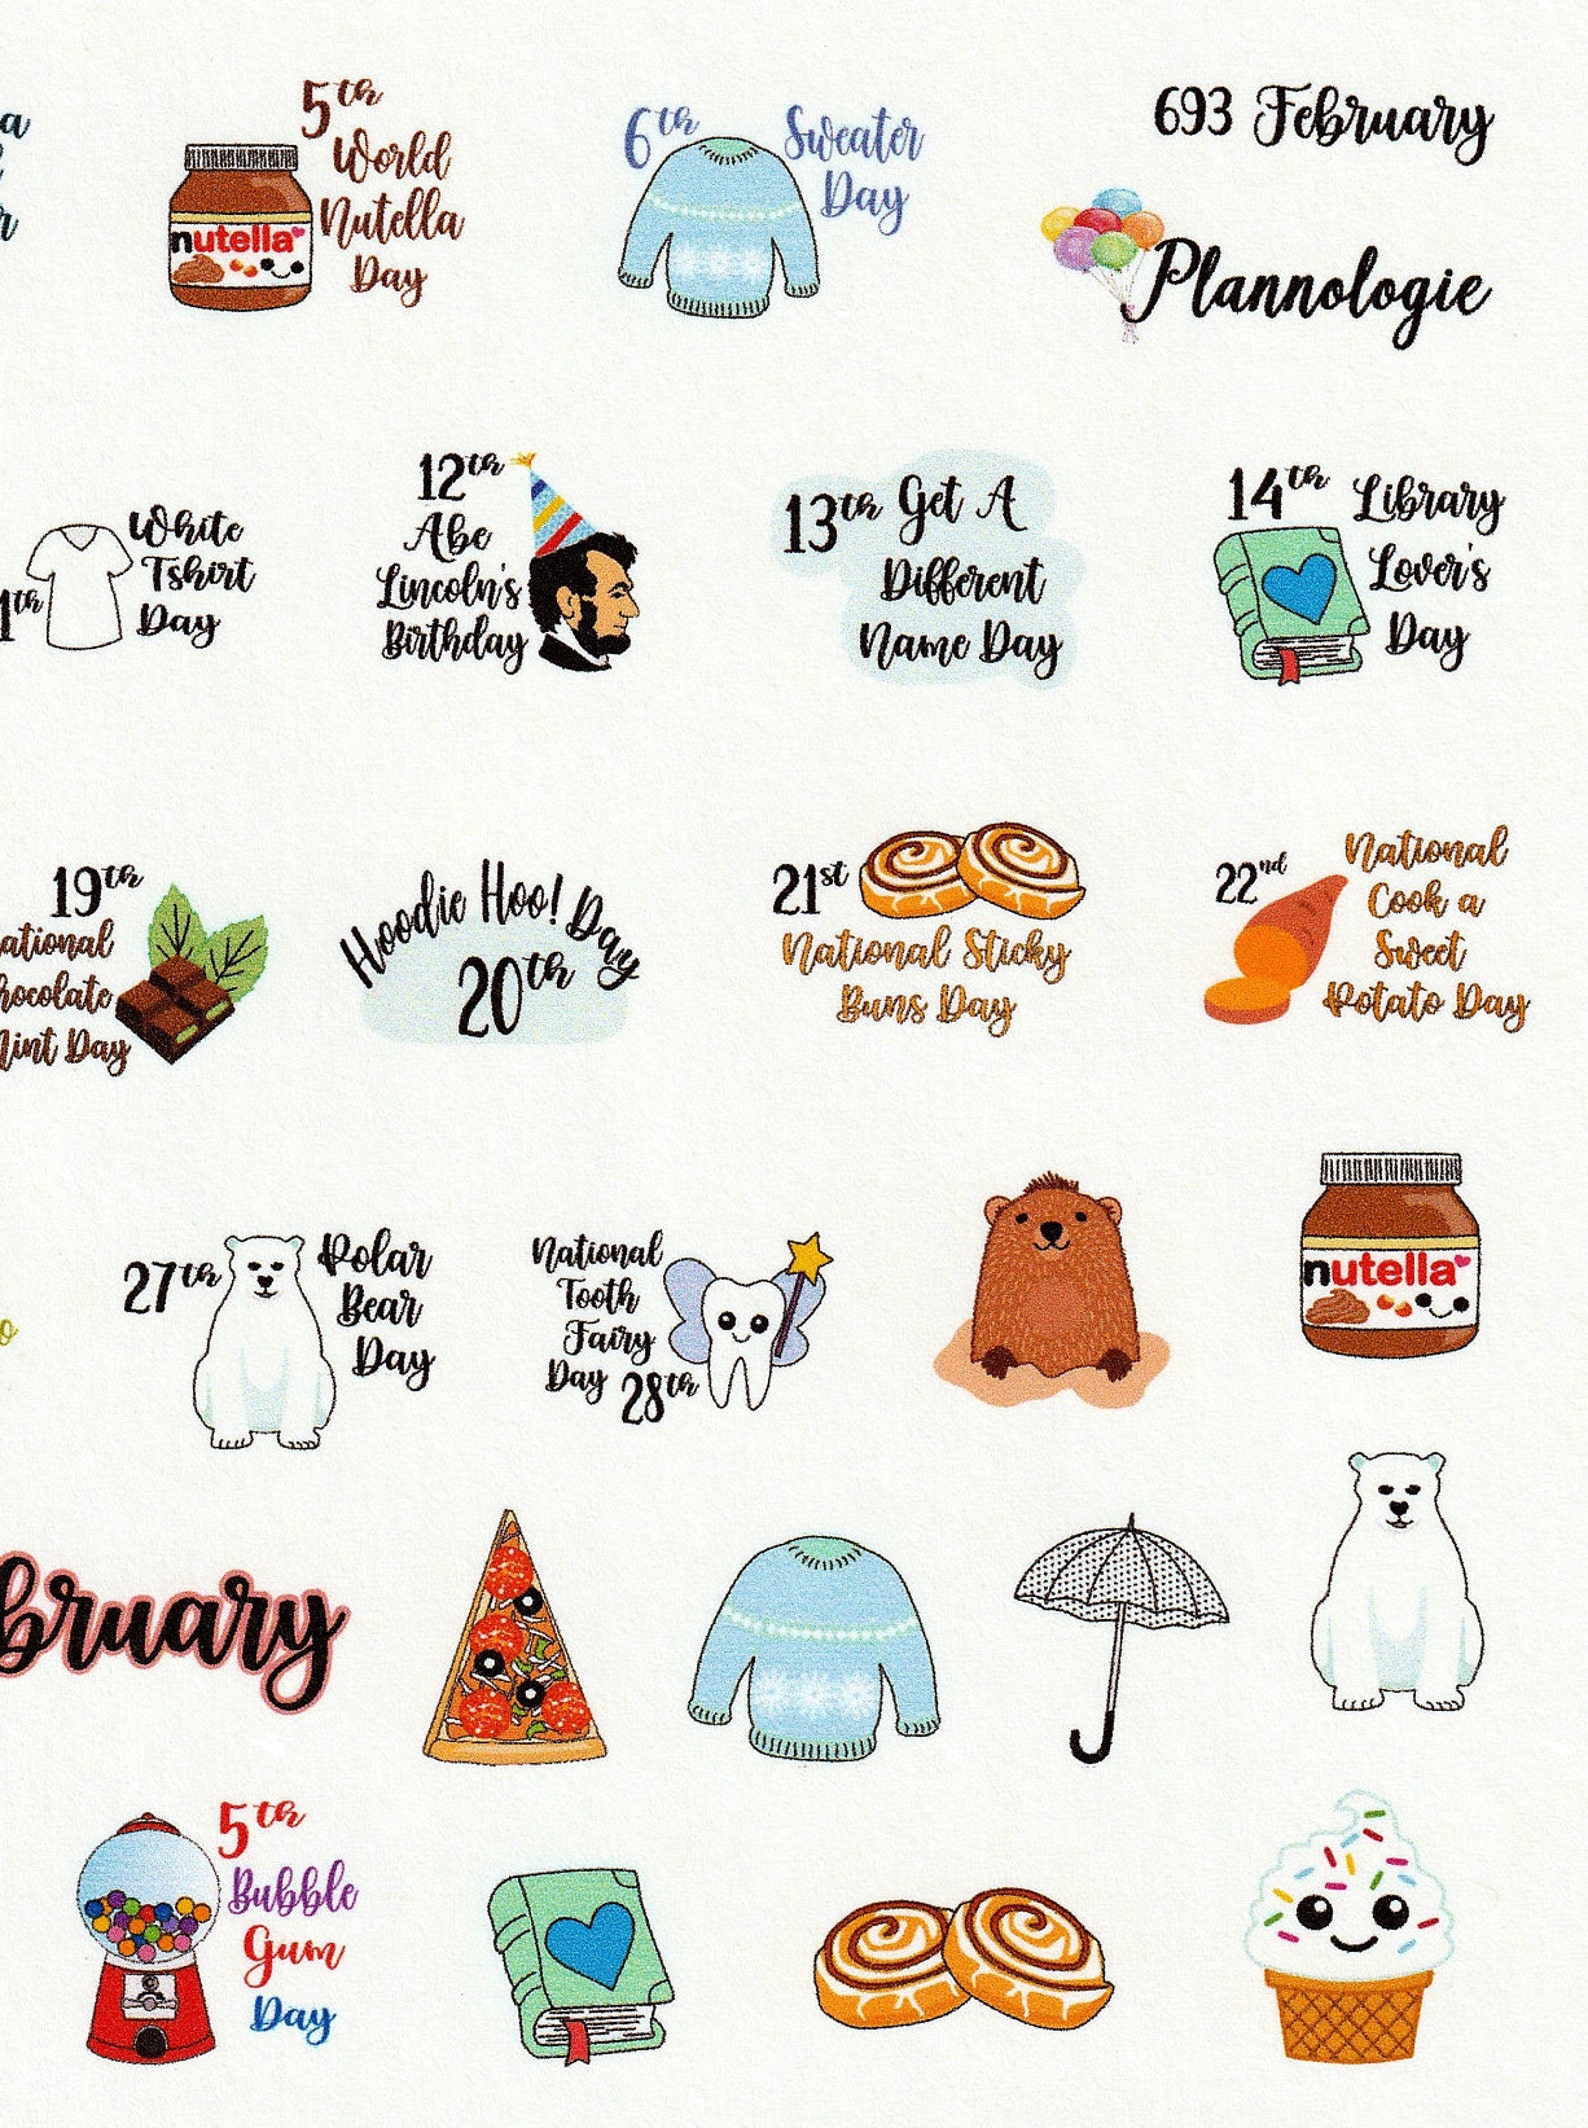 5th
World
Nutella
Day
nutella
6th Sweater
Day
693 February
Plannologie
White
Tshirt
Day
12th
Abe
Lincoln's
Birthday
13th Get A
Different
Name Day
14th Library
Lover's
Day
19th
Mint Day
Hoodie Hoo! Day
20th
21st
National Sticky
Buns Day
22nd National
Cook a
Sweet
Potato Day
27th Polar
Bear
Day
National
Tooth
Fairy
Day 28th
nutella
bruary
5th
Bubble
Gum
Day